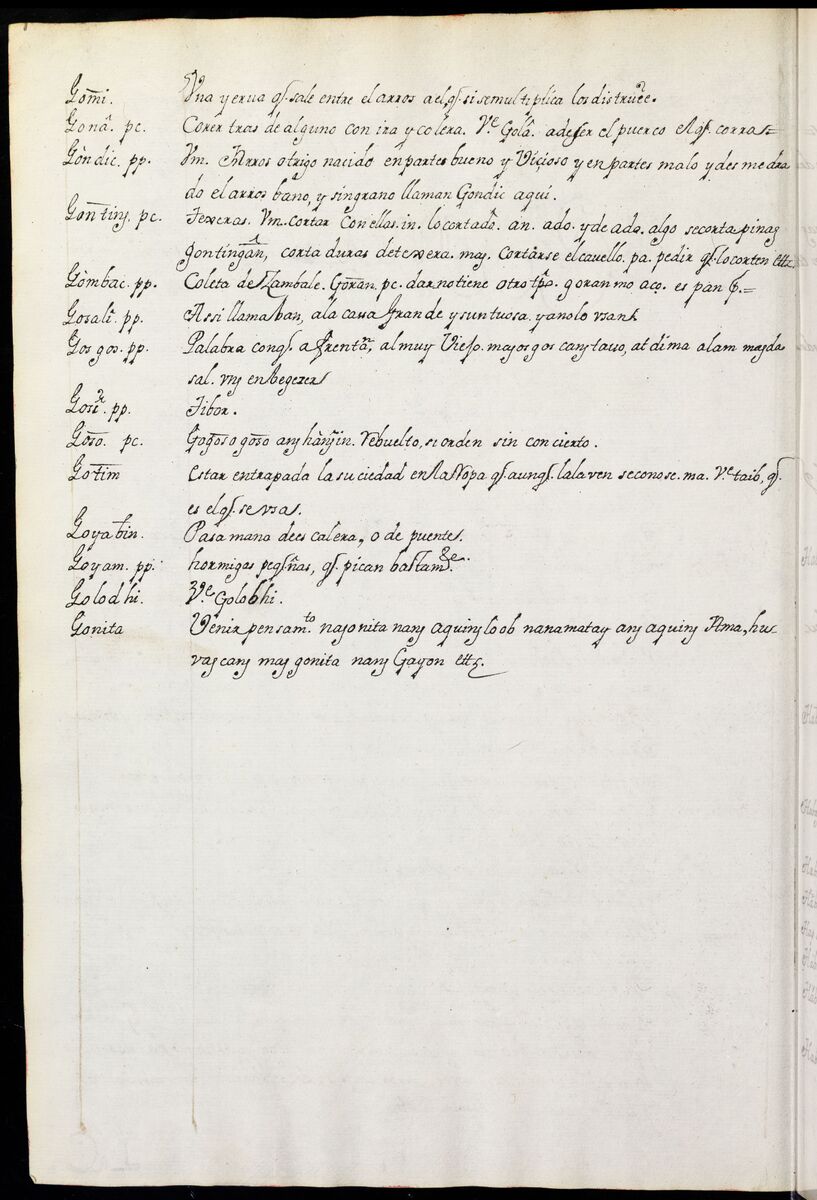 Gom̃i. Vna yerua q̃. sale entre el arros a el q̃. si semultiplica los distruỹe.
Gonâ. pc. Corer tras de alguno con ira y colera. Vᵉ. Golâ. adeser el puerco elq̃. corras=
Gòndic. pp. Vm. Arros otrigo nacido enpartes bueno y Viçioso y enpartes malo ydes medra
do el arros bano, y singrano llaman Gondic aquí.
Gon̄ting. pc. Texeras. Vm. cortar Con ellas. in. lo cortadº. an. ado. y de ado. algo secorta pinag
gontingan, corta duras detexera. mag. Cortàrse elcauello. pa. pedir q̃. lo corten ettz.
Gòmbac. pp. Coleta de Zambale. Gor̃an. pc. dar no tiene otro tpª. goran mo aco. es pan p̱.=
Gosali. pp. Assi llamaban, ala cassa grande y suntuosa. yanolo vsan.
Gosgos. pp. Palabra conq̃. afrentã, almuy Viejo. magosgos cang tauo, at dima alam magda
sal. vng enbegezer
Gosi. pp. Tibor.
Gos̃o. pc. Gogoso goso ang hàngin. rebuelto, si orden sin concierto.
Gotim Estar entrapada la su ciedad enlaRopa q̃. aunq̃. lalaven seconose. ma. Vᵉ. taib, q̃.
es elq̃. se vsa.
Goyabin. Pasa mano dees calera, o de puentes.
Goyam. pp. hormigas peq̃.ñas, q̃. pican bastamᵗᵉ.
Golodhi. Vᵉ. Golobhi.
Gonita Venir pensamᵗº nagonita nang aquing loob nanamatay ang aquing Ama, hu=
vag cang mag gonita nang Gayon ettz.